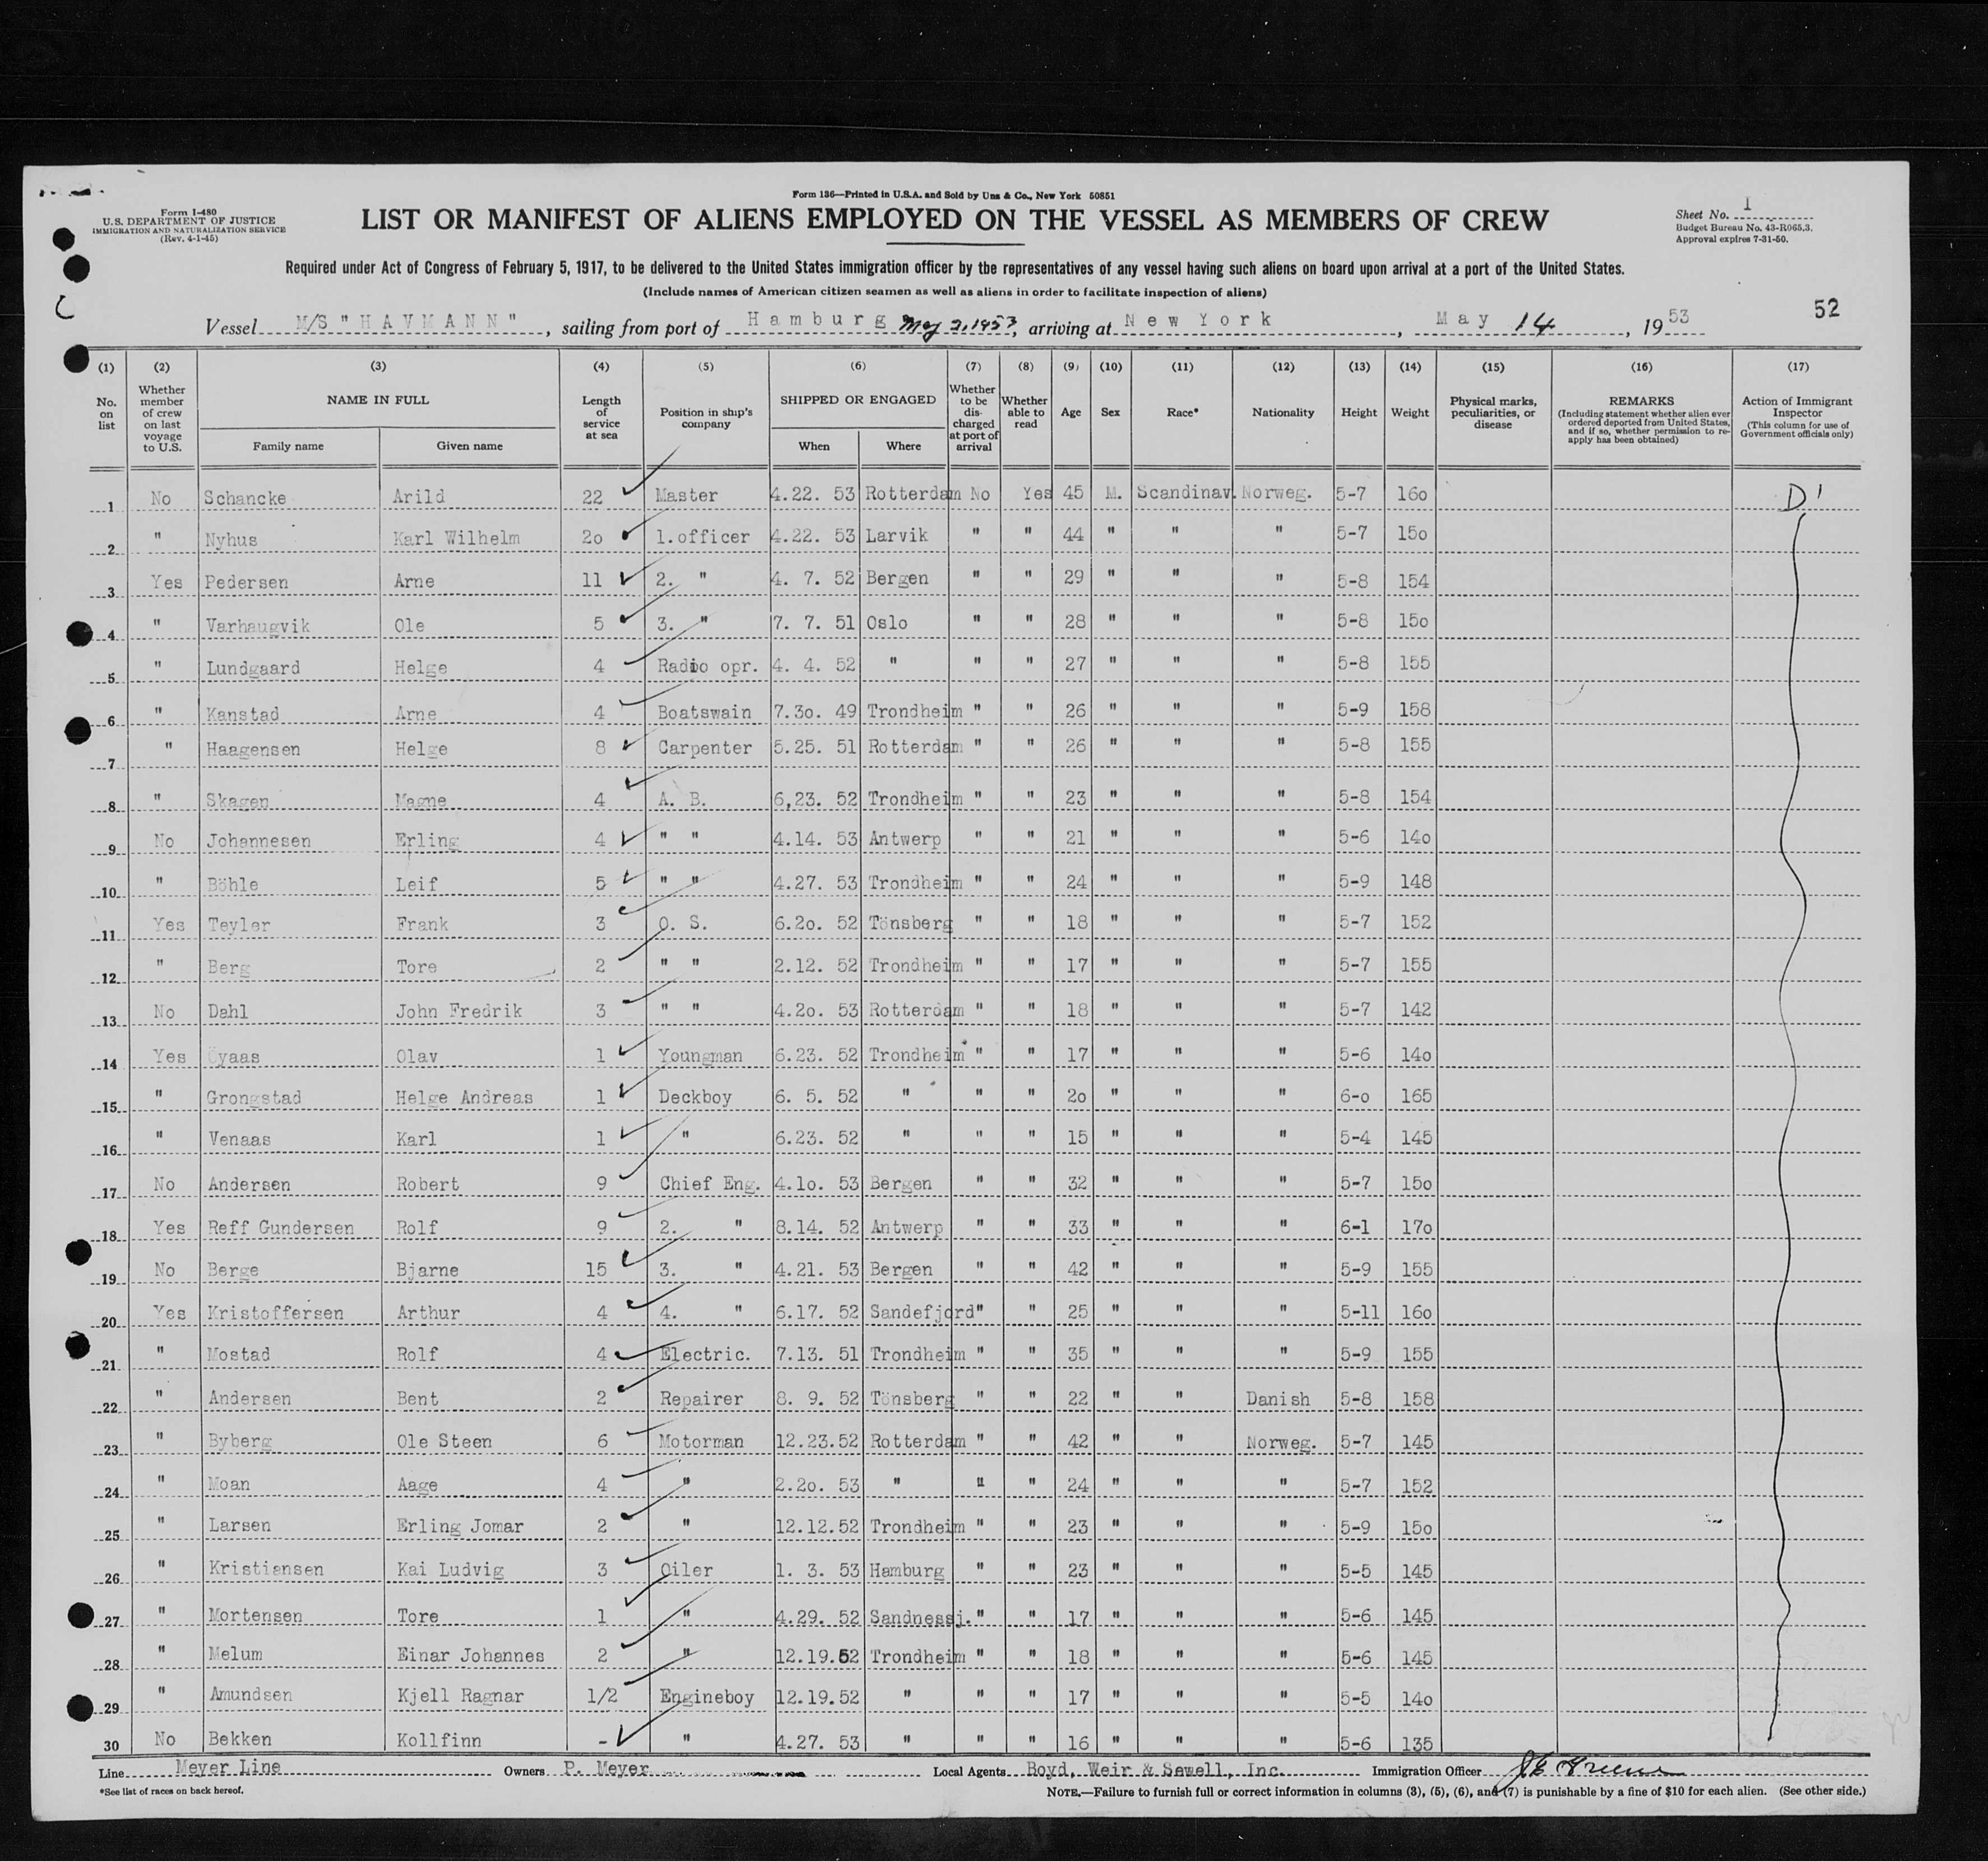 Form 136—Printed in U.S.A. and Sold by Unz & Co., New York 50851
Form I-480
U.S. DEPARTMENT OF JUSTICE
IMMIGRATION AND NATURALIZATION SERVICE
(Rev. 4-1-45)
LIST OR MANIFEST OF ALIENS EMPLOYED ON THE VESSEL AS MEMBERS OF CREW
Sheet No. 1
Budget Bureau No. 43-R065.3.
Approval expires 7-31-50.
Required under Act of Congress of February 5, 1917, to be delivered to the United States immigration officer by the representatives of any vessel having such aliens on board upon arrival at a port of the United States.
(Include names of American citizen seamen as well as aliens in order to facilitate inspection of aliens)
52
Vessel M/S "HAVMANN", sailing from port of Hamburg May 2, 1953, arriving at New York, May 14, 1953
(1) (2) (3) (4) (5) (6) (7) (8) (9) (10) (11) (12) (13) (14) (15) (16) (17)
No. on list
Whether member of crew on last voyage to U.S.
NAME IN FULL
Family name Given name
Length of service at sea
Position in ship's company
SHIPPED OR ENGAGED
When Where
Whether to be discharged at port of arrival
Whether able to read
Age
Sex
Race*
Nationality
Height
Weight
Physical marks, peculiarities, or disease
REMARKS
(Including statement whether alien ever ordered deported from United States, and if so, whether permission to re-apply has been obtained)
Action of Immigrant Inspector
(This column for use of Government officials only)
1 No Schancke Arild 22 Master 4.22. 53 Rotterdam No Yes 45 M. Scandinav. Norweg. 5-7 16o D
2 " Nyhus Karl Wilhelm 2o 1.officer 4.22. 53 Larvik " " 44 " " " 5-7 15o
3 Yes Pedersen Arne 11 2. " 4. 7. 52 Bergen " " 29 " " " 5-8 154
4 " Varhaugvik Ole 5 3. " 7. 7. 51 Oslo " " 28 " " " 5-8 15o
5 " Lundgaard Helge 4 Radio opr. 4. 4. 52 " " " 27 " " " 5-8 155
6 " Kanstad Arne 4 Boatswain 7.3o. 49 Trondheim " " 26 " " " 5-9 158
7 " Haagensen Helge 8 Carpenter 5.25. 51 Rotterdam " " 26 " " " 5-8 155
8 " Skagen Magne 4 A. B. 6,23. 52 Trondheim " " 23 " " " 5-8 154
9 No Johannesen Erling 4 " " 4.14. 53 Antwerp " " 21 " " " 5-6 14o
10 " Böhle Leif 5 " " 4.27. 53 Trondheim " " 24 " " " 5-9 148
11 Yes Teyler Frank 3 O. S. 6.2o. 52 Tönsberg " " 18 " " " 5-7 152
12 " Berg Tore 2 " " 2.12. 52 Trondheim " " 17 " " " 5-7 155
13 No Dahl John Fredrik 3 " " 4.2o. 53 Rotterdam " " 18 " " " 5-7 142
14 Yes Öyaas Olav 1 Youngman 6.23. 52 Trondheim " " 17 " " " 5-6 14o
15 " Grongstad Helge Andreas 1 Deckboy 6. 5. 52 " " " 2o " " " 6-o 165
16 " Venaas Karl 1 " 6.23. 52 " " " 15 " " " 5-4 145
17 No Andersen Robert 9 Chief Eng. 4.1o. 53 Bergen " " 32 " " " 5-7 15o
18 Yes Reff Gundersen Rolf 9 2. " 8.14. 52 Antwerp " " 33 " " " 6-1 17o
19 No Berge Bjarne 15 3. " 4.21. 53 Bergen " " 42 " " " 5-9 155
20 Yes Kristoffersen Arthur 4 4. " 6.17. 52 Sandefjord " " 25 " " " 5-11 16o
21 " Mostad Rolf 4 Electric. 7.13. 51 Trondheim " " 35 " " " 5-9 155
22 " Andersen Bent 2 Repairer 8. 9. 52 Tönsberg " " 22 " " Danish 5-8 158
23 " Byberg Ole Steen 6 Motorman 12.23.52 Rotterdam " " 42 " " Norweg. 5-7 145
24 " Moan Aage 4 " 2.2o. 53 " " " 24 " " " 5-7 152
25 " Larsen Erling Jomar 2 " 12.12.52 Trondheim " " 23 " " " 5-9 15o
26 " Kristiansen Kai Ludvig 3 Oiler 1. 3. 53 Hamburg " " 23 " " " 5-5 145
27 " Mortensen Tore 1 " 4.29. 52 Sandnessj. " " 17 " " " 5-6 145
28 " Melum Einar Johannes 2 " 12.19.52 Trondheim " " 18 " " " 5-6 145
29 " Amundsen Kjell Ragnar 1/2 Engineboy 12.19.52 " " " 17 " " " 5-5 14o
30 No Bekken Kollfinn - " 4.27. 53 " " " 16 " " " 5-6 135
Line Meyer Line Owners P. Meyer Local Agents Boyd, Weir & Sewell, Inc. Immigration Officer
*See list of races on back hereof.
NOTE.—Failure to furnish full or correct information in columns (3), (5), (6), and (7) is punishable by a fine of $10 for each alien. (See other side.)